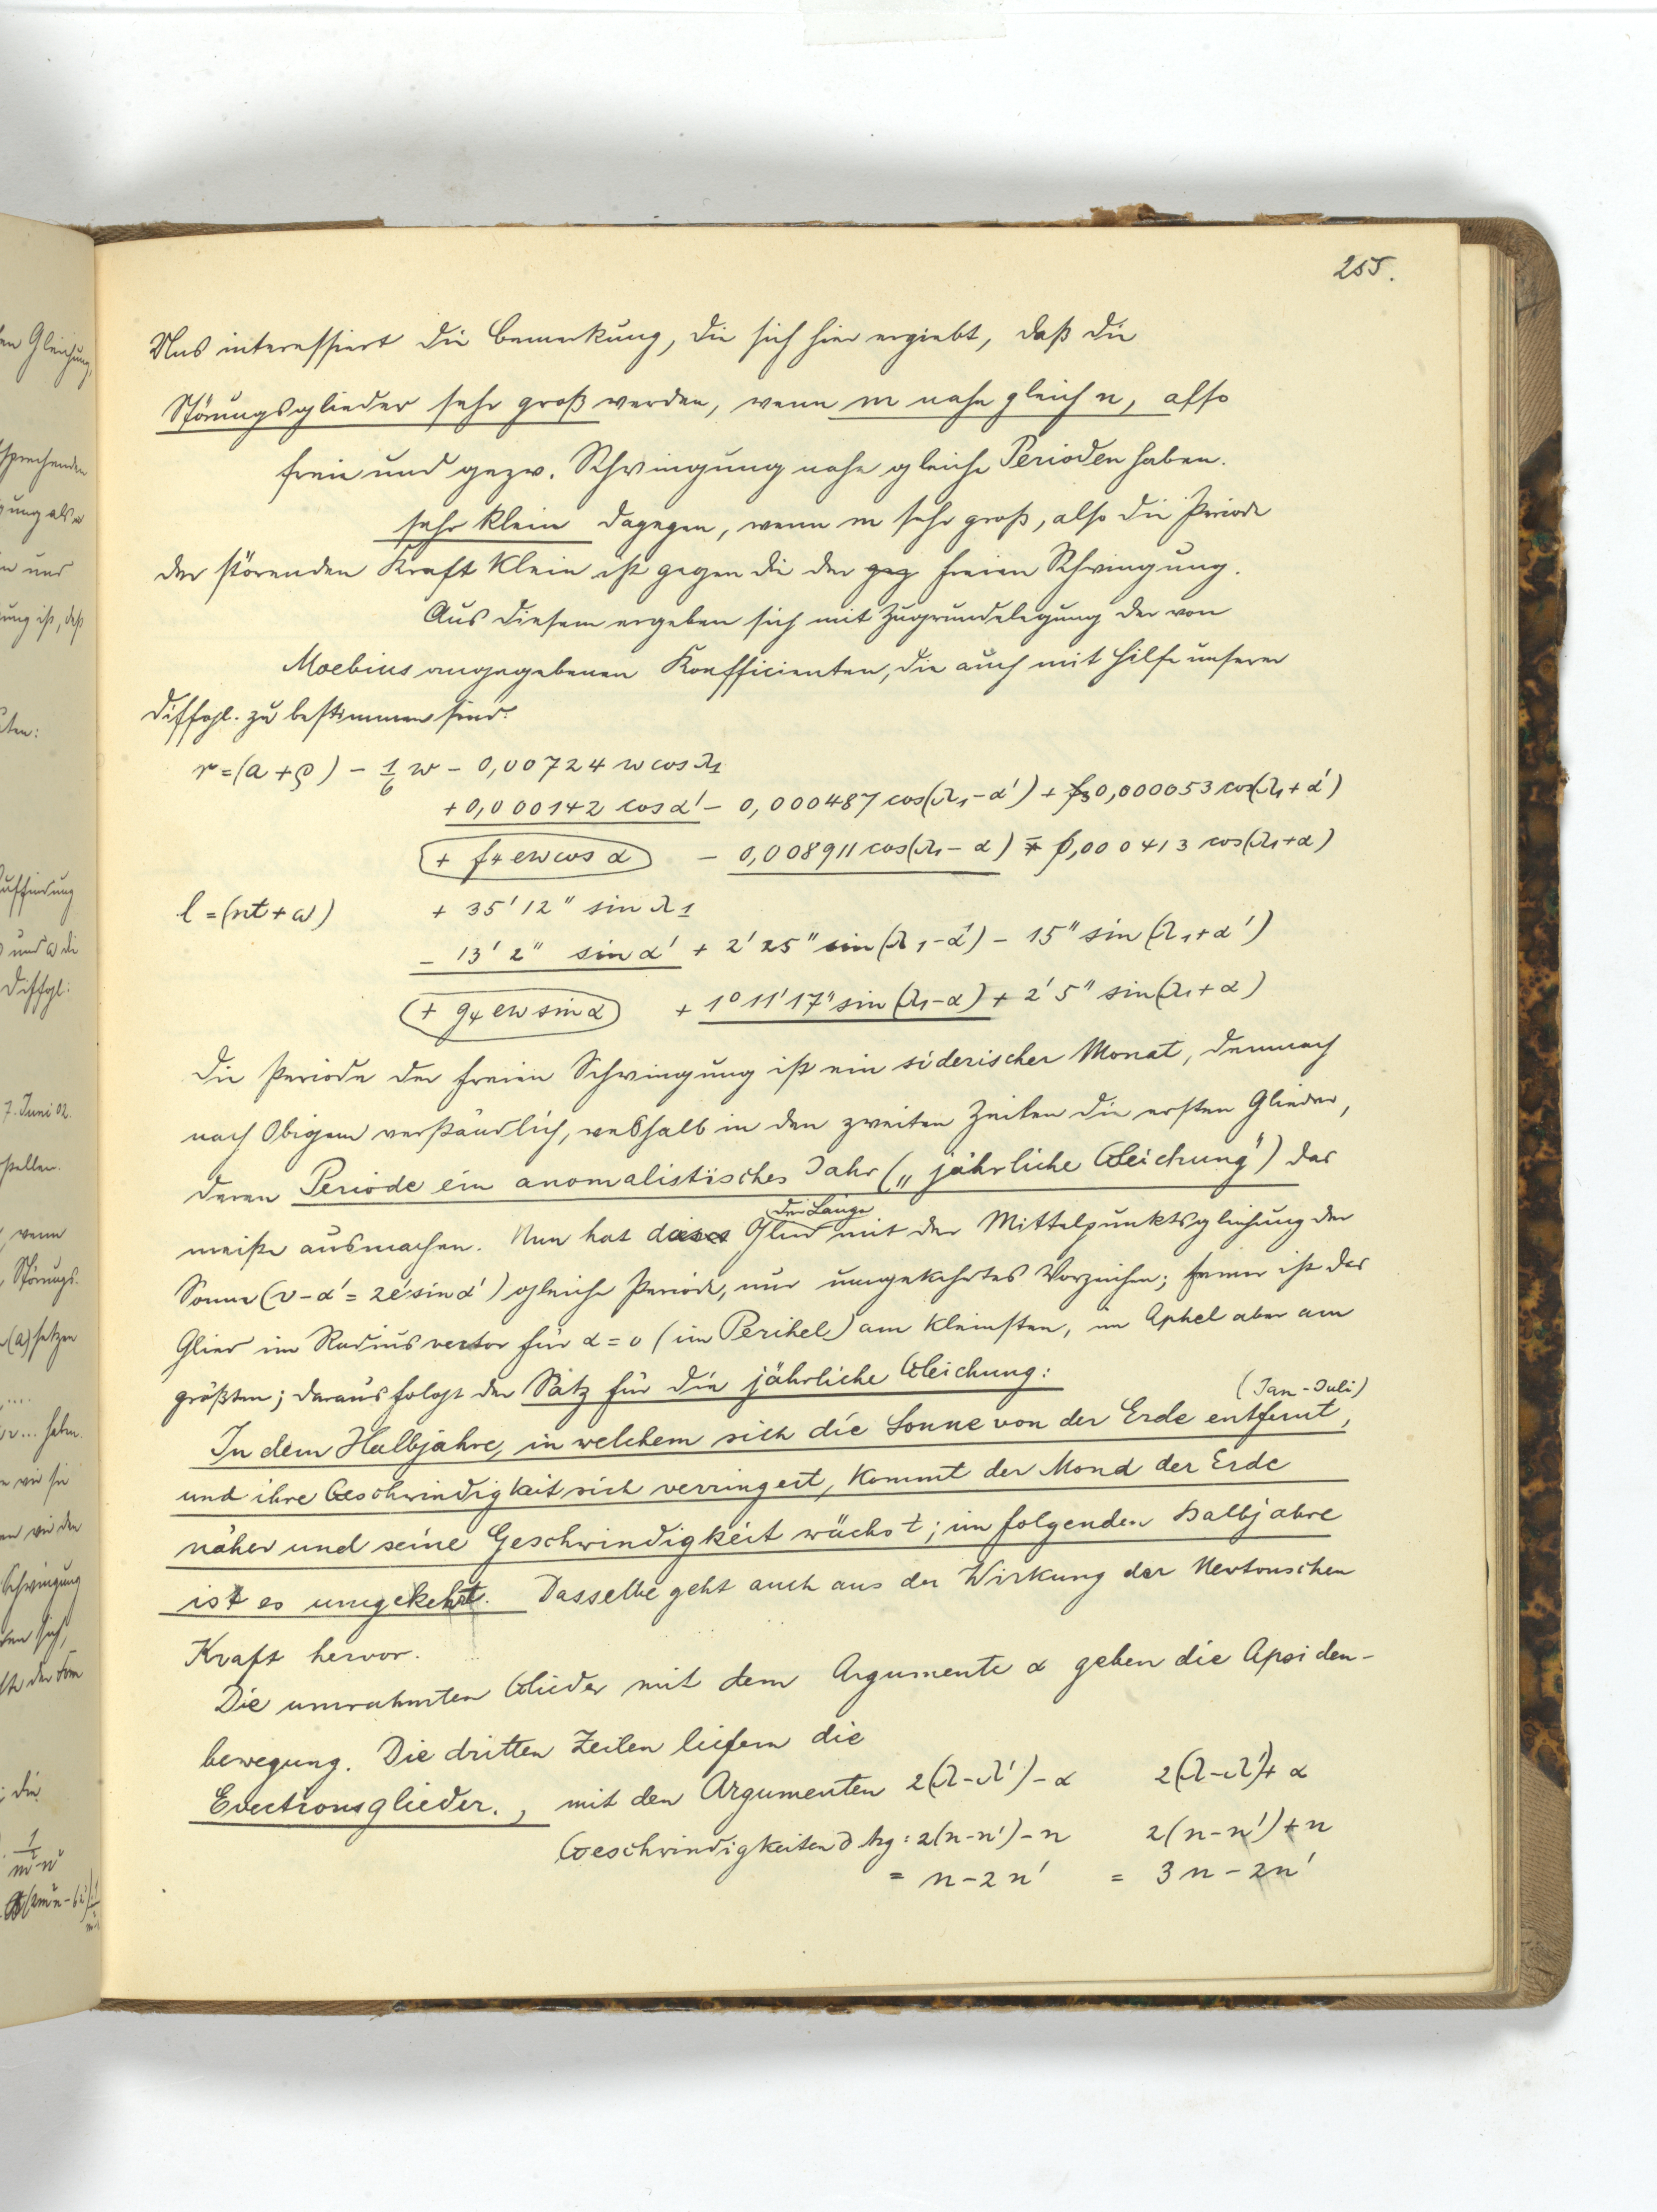 255.
Uns interessiert die Bemerkung, die sich hier ergiebt, daß die
Störungsglieder sehr groß werden, wenn m nahe gleich n, also
freie und gezw. Schwingung nahe gleiche Perioden haben.
sehr klein dagegen, wenn m sehr groß, also die Periode
der störenden Kraft klein ist gegen die der geg freien Schwingung.
Aus diesem ergeben sich mit Zugrundelegung der von
Moebius angegebenen Koefficienten, die auch mit Hilfe unserer
Diffgl. zu bestimmen sind:
r = (a + ρ) - 1/6 w - 0,00724 w cos λ1
+ 0,000142 cos α' - 0,000487 cos(λ1 - α') + f5 0,000053 cos(λ1 + α')
+ f4 ew cos α - 0,008911 cos(λ1 - α) ∓ 0,000413 cos(λ1 + α)
l = (nt + ω) + 35' 12" sin λ1
- 13' 2" sin α' + 2' 25" sin(λ1 - α') - 15" sin(λ1 + α')
+ g4 ew sin α + 1° 11' 17" sin(λ1 - α) + 2' 5" sin(λ1 + α)
Die Periode der freien Schwingung ist ein siderischer Monat, demnach
nach Obigem verständlich, weshalb in den zweiten Zeilen die ersten Glieder,
deren Periode ein anomalistisches Jahr („jährliche Gleichung") das
meiste ausmachen. Nun hat dieses Glied der Länge mit der Mittelpunktsgleichung der
Sonne (v - α' = 2e' sin α') gleiche Periode, nur umgekehrtes Vorzeichen; ferner ist das
Glied im Radiusvector für α = 0 (im Perihel) am kleinsten, im Aphel aber am
größten; daraus folgt der Satz für die jährliche Gleichung:
(Jan - Juli)
In dem Halbjahre, in welchem sich die Sonne von der Erde entfernt,
und ihre Geschwindigkeit sich verringert, kommt der Mond der Erde
näher und seine Geschwindigkeit wächst; im folgenden Halbjahre
ist es umgekehrt. Dasselbe geht auch aus der Wirkung der Newtonschen
Kraft hervor.
Die umrahmten Glieder mit dem Argumente α geben die Apsiden-
bewegung. Die dritten Zeilen liefern die
Evectionsglieder, mit den Argumenten 2(λ - λ') - α 2(λ - λ') + α
Geschwindigkeiten d Arg: 2(n - n') - n 2(n - n') + n
= n - 2n' = 3n - 2n'